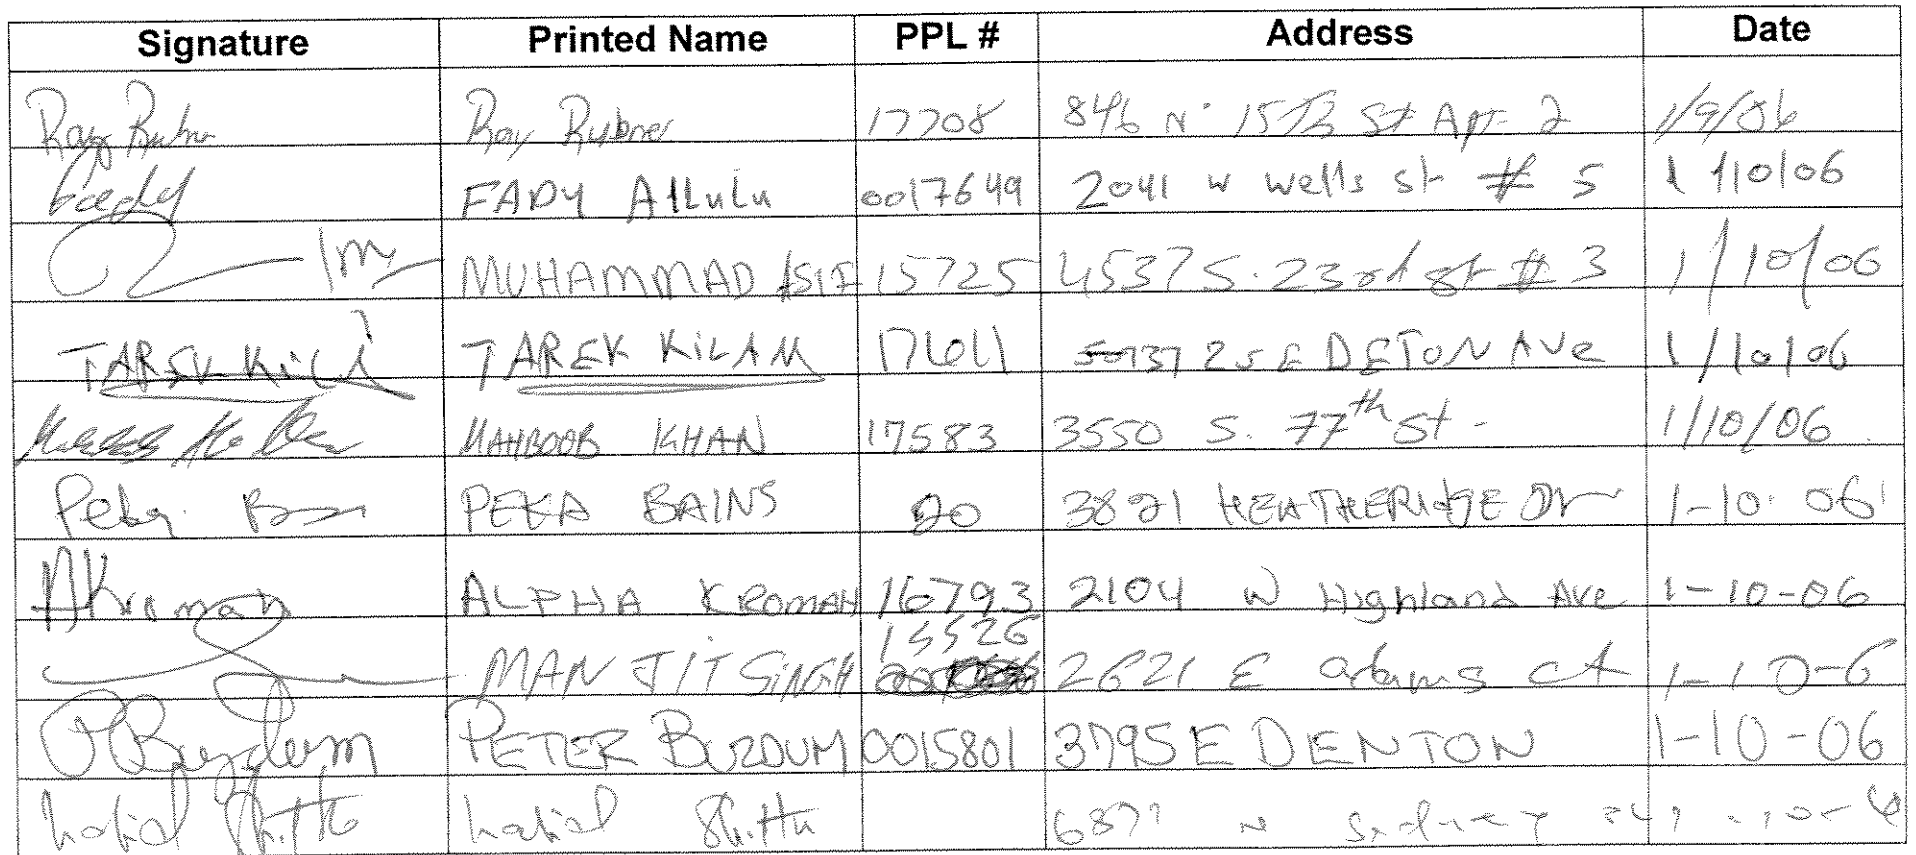 Signature Printed Name PPL # Address Date
Ray Rubner 17708 846 N. 15th St Apt 2 1/9/06
Fady FADY Allulu 0017649 2041 W Wells St # 5 1/10/06
MUHAMMAD ASIF 15725 4537 S. 23rd St # 3 1/10/06
TAREK KILAM 17611 3725 E DETON AVE 1/10/06
MAHBOOB KHAN 17583 3550 S. 77th St. 1/10/06
PEKA BAINS 20 3821 HEATHERIDGE DR 1-10-06
AKromah ALPHA KROMAH 16793 2104 W Highland Ave 1-10-06
15526
MANJIT SINGH 2621 E adams ct 1-10-6
PBuzdum PETER BUZDUM 0015801 3795 E DENTON 1-10-06
Shittu Shittu N